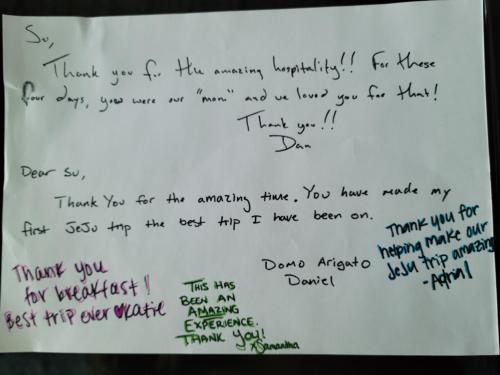 Su,
Thank you for the amazing hospitality!! For these
four days, you were our "mom" and we loved you for that!
Thank you!!
Dan
Dear Su,
Thank You for the amazing time. You have made my
first JeJu trip the best trip I have been on.
Domo Arigato
Daniel
Thank you
for breakfast!
Best trip ever ♥Katie
THIS HAS
BEEN AN
AMAZING
EXPERIENCE.
THANK YOU!
xSamantha
Thank you for
helping make our
JeJu trip amazing